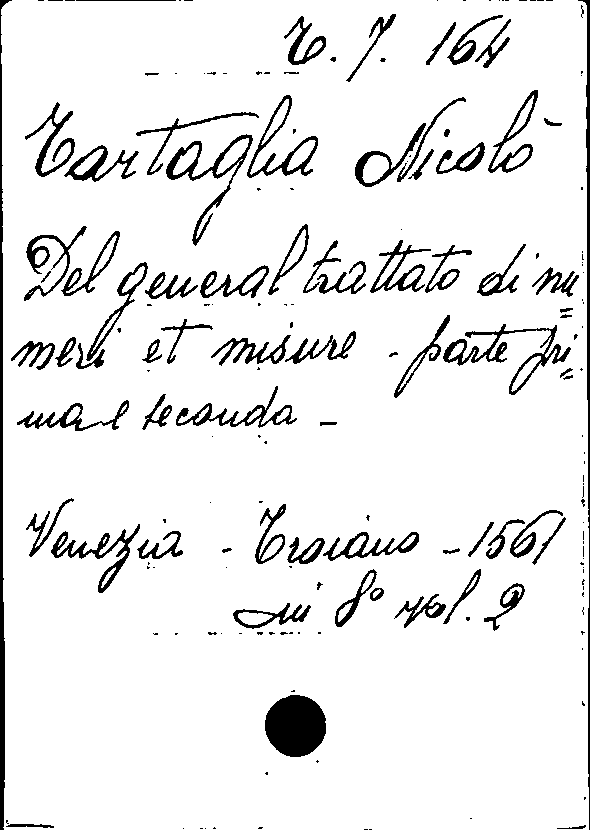 T. 7. 164
Tartaglia Nicolò
Del general trattato di nu=
meri et misure - parte pri=
ma e seconda -
Venezia - Troiano - 1561
in 8° vol. 2